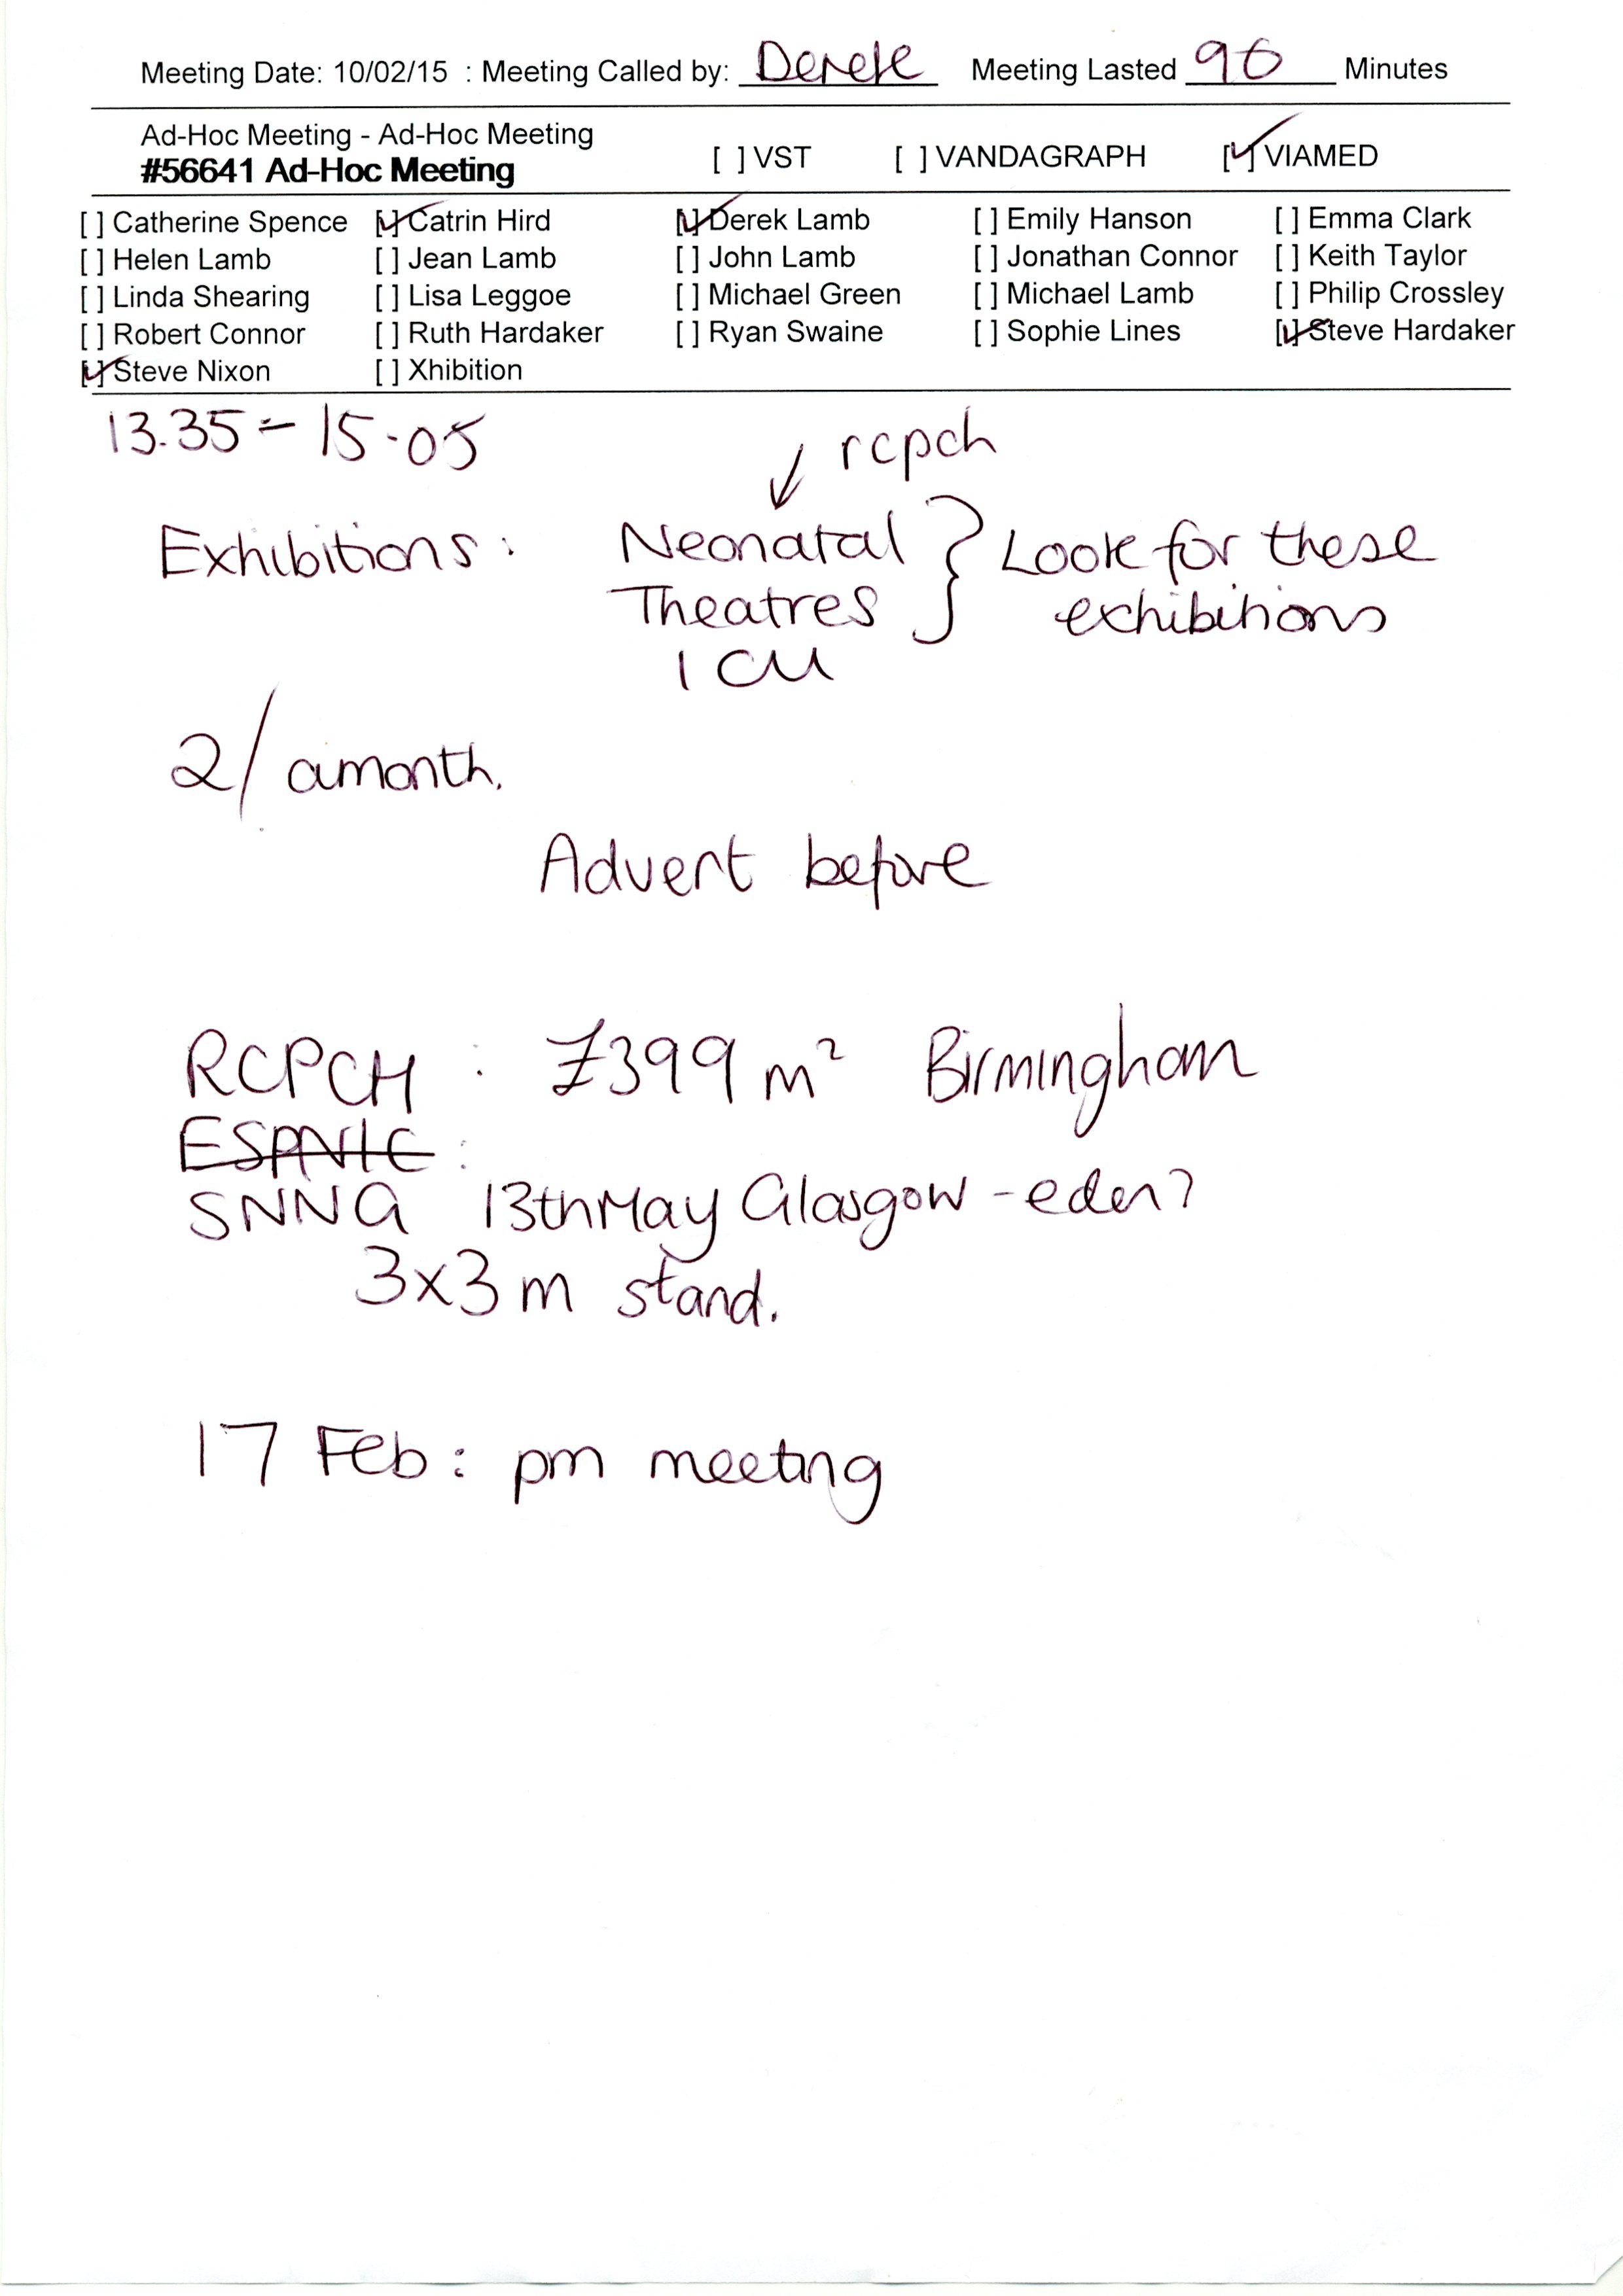 Meeting Date: 10/02/15 : Meeting Called by: Derek Meeting Lasted 90 Minutes
Ad-Hoc Meeting - Ad-Hoc Meeting
#56641 Ad-Hoc Meeting [ ] VST [ ] VANDAGRAPH [✓] VIAMED
[ ] Catherine Spence [✓] Catrin Hird [✓] Derek Lamb [ ] Emily Hanson [ ] Emma Clark
[ ] Helen Lamb [ ] Jean Lamb [ ] John Lamb [ ] Jonathan Connor [ ] Keith Taylor
[ ] Linda Shearing [ ] Lisa Leggoe [ ] Michael Green [ ] Michael Lamb [ ] Philip Crossley
[ ] Robert Connor [ ] Ruth Hardaker [ ] Ryan Swaine [ ] Sophie Lines [✓] Steve Hardaker
[✓] Steve Nixon [ ] Xhibition
13.35 - 15.05
↓ rcpch
Exhibitions: Neonatal } Look for these
Theatres exhibitions
ICU
2/ a month.
Advent before
RCPCH : £399 m² Birmingham
ESPNIC :
SNNG 13th May Glasgow - eden?
3x3m stand.
17 Feb: pm meeting